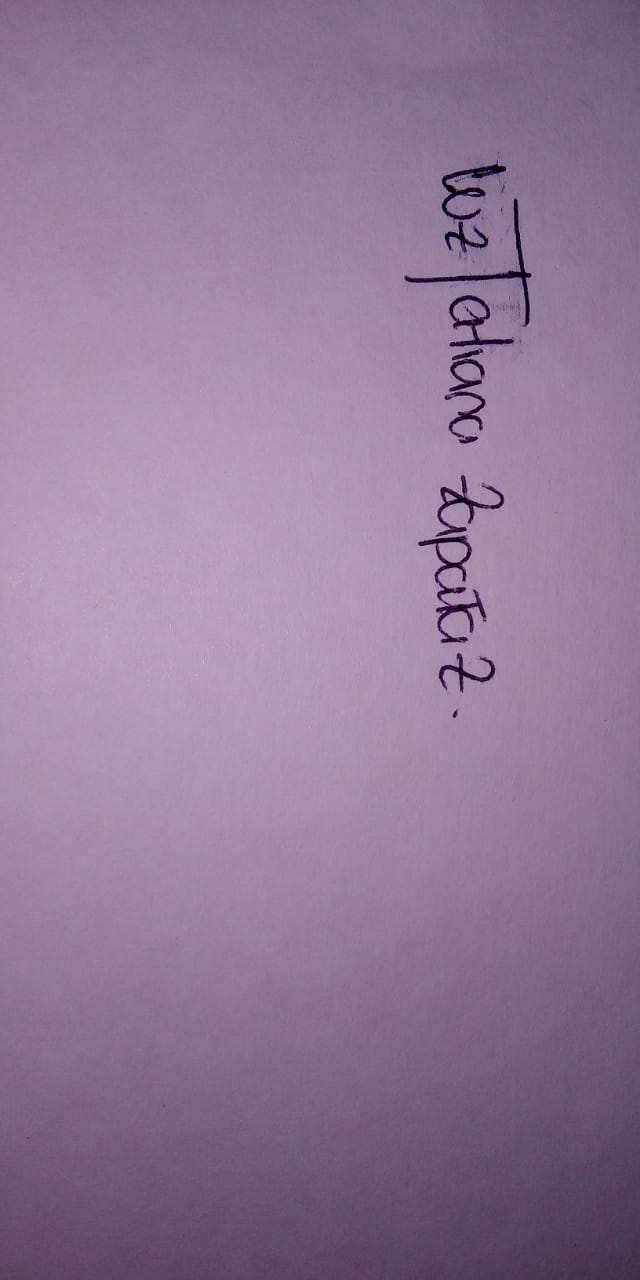 Luz Tatiana Zapata Z.